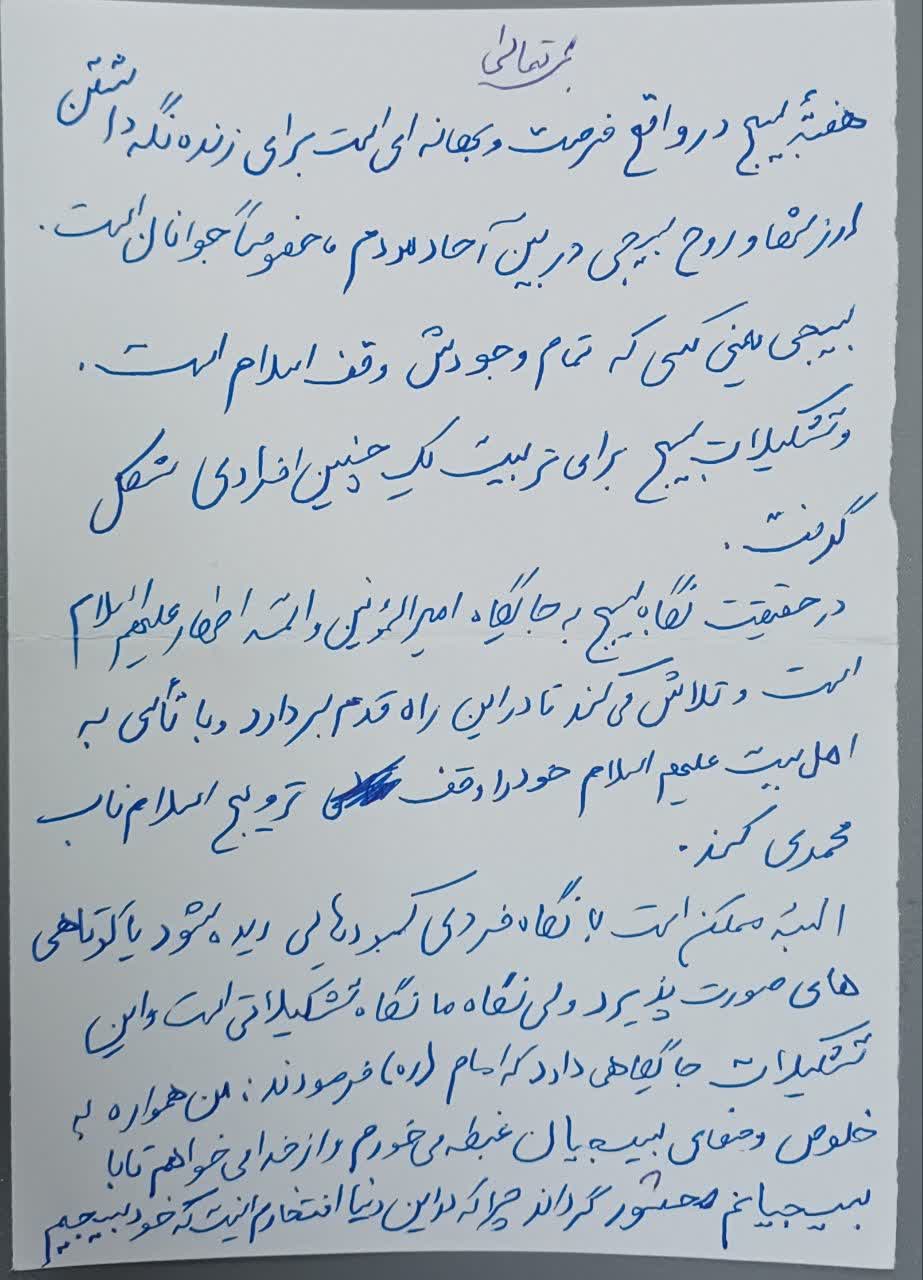 بسمه تعالی
هفتهٔ بسیج در واقع فرصت و بهانه ای است برای زنده نگه داشتن
ارزشها و روح بسیجی در بین آحاد مردم، خصوصاً جوانان است.
بسیجی یعنی کسی که تمام وجودش وقف اسلام است.
و تشکیلات بسیج برای تربیت یک چنین افرادی شکل
گرفت.
در حقیقت نگاه بسیج به جایگاه امیرالمؤنین و ائمه اطهار علیهم السلام
است و تلاش می کند تا در این راه قدم بردارد و با تأسی به
اهل بیت علیهم السلام خود را وقف ترویج اسلام ناب
محمدی کند.
البته ممکن است با نگاه فردی کمبودهایی دیده شود یا کوتاهی
های صورت پذیرد ولی نگاه ما نگاه تشکیلاتی است و این
تشکیلات جایگاهی دارد که امام (ره) فرمودند: من همواره به
خلوص و صفای بسیجیان غبطه می خورم و از خدا می خواهم تا با
بسیجیانم محشور گرداند چرا که در این دنیا افتخارم اینست که خود بسیجیم